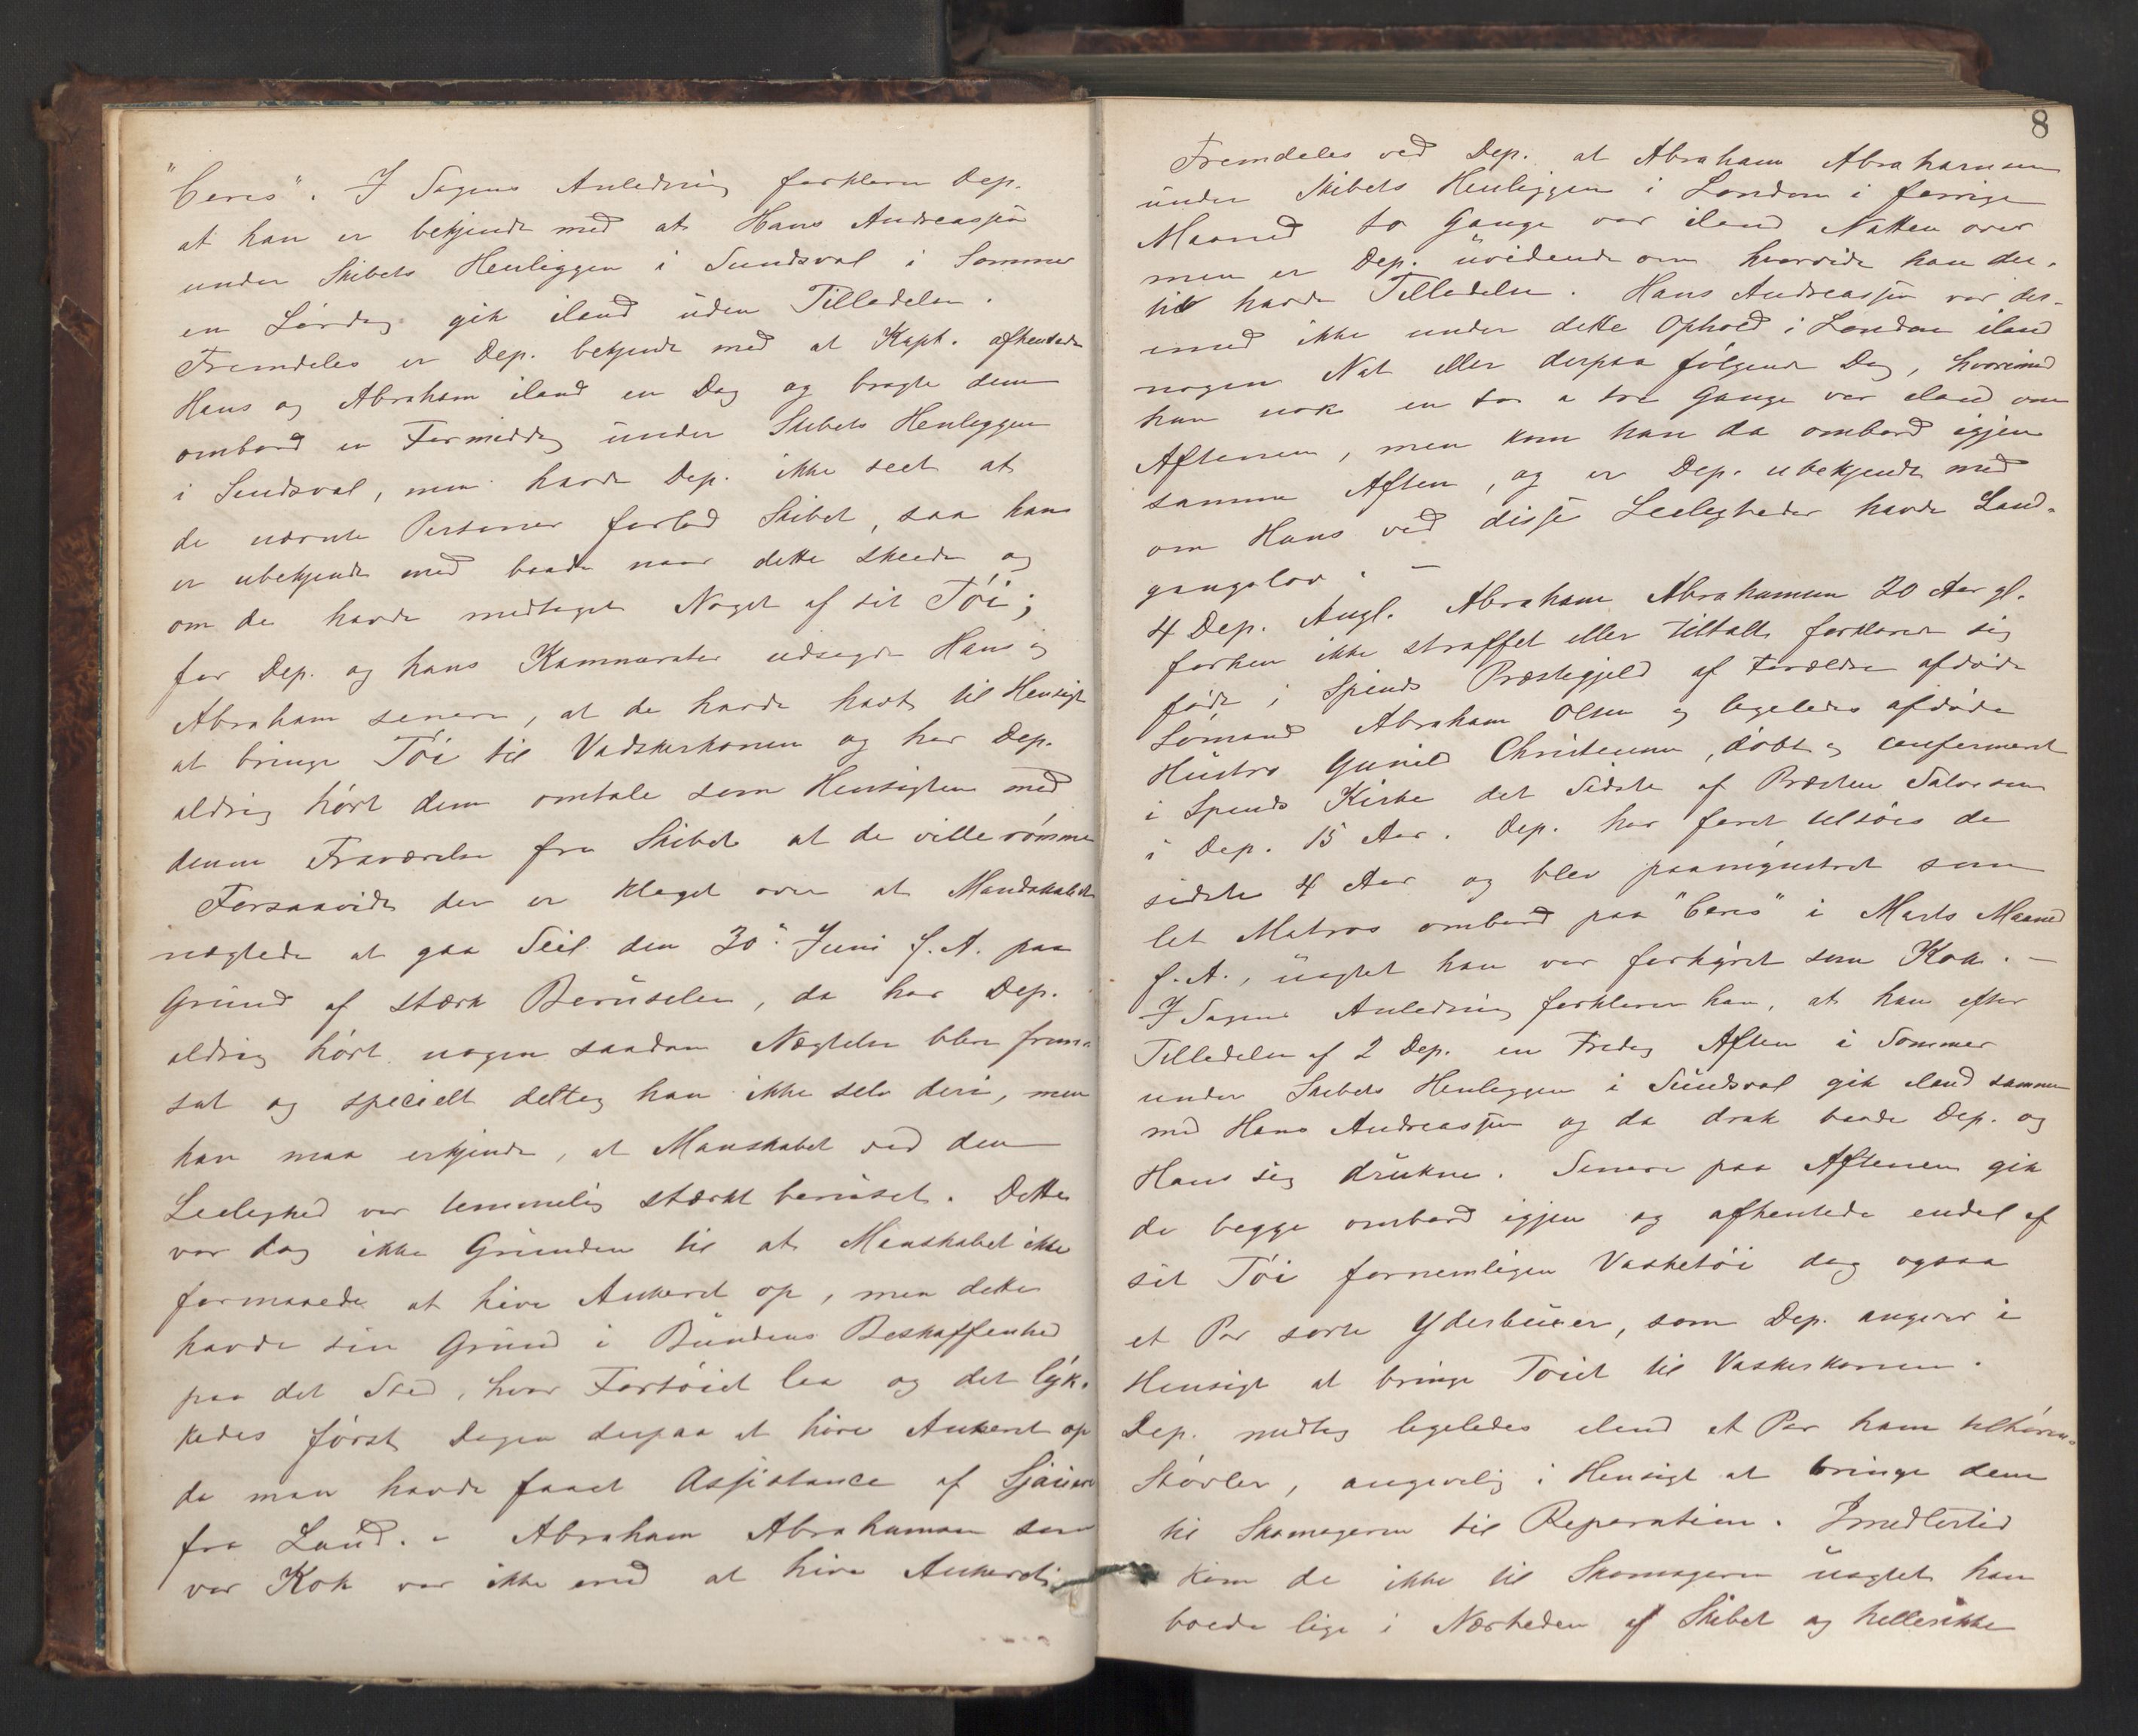 "Ceres". I Sagens Anledning forklarer Dep.
at han er bekjendt med at Hans Andreassen
under Skibets Henliggen i Sundsval i Sommer
en Lørdag gik iland uden Tilladelse.
Fremdeles er Dep. bekjendt med at Kapt. afhentede
Hans og Abraham iland en Dag og bragte dem
ombord en Formiddag under Skibets Henliggen
i Sundsval, men havde Dep. ikke seet at
de nævnte Personer forlod Skibet, saa han
er ubekjendt med baade naar dette skeede og
om de havde medtaget Noget af sit Tøi;
for Dep. og hans Kammerater udsagde Hans og
Abraham senere, at de havde havt til Hensigt
at bringe Tøi til Vadskerkonen og har Dep.
aldrig hørt dem omtale som Hensigten med
denne Fraværelse fra Skibet at de ville rømme
Forsaavidt der er klaget over at Mandskabet
nægtede at gaa Seil den 30.' Juni f. A. paa
Grund af stærk Beruselse, da har Dep.
aldrig hørt nogen saadan Nægtelse blive frem-
sat og specielt deltog han ikke selv deri, men
han maa erkjende, at Manskabet ved den
Leilighed var temmelig stærkt beruset. Dette
var dog ikke Grunden til at Manskabet ikke
formaaede at hive Ankeret op, men dette
havde sin Grund i Bundens Beskaffenhed
paa det Sted, hvor Fartøiet laa og det lyk-
kedes først Dagen derpaa at hive Ankeret op
da man havde faaet Assistance af Sjauere
fra Land. - Abraham Abrahamsen som
var Kok var ikke med at hive Ankeret
8
Fremdeles ved Dep. at Abraham Abrahamsen
under Skibets Henliggen i London i forrige
Maaned to Gange var iland Natten over
men er Dep. uvidende om hvorvidt han der-
til havde Tilladelse. Hans Andreassen var der-
imod ikke under dette Ophold i London iland
nogen Nat eller derpaa følgende Dag, hvorimod
han nok en to a tre Gange var iland om
Aftenen, men kom han da ombord igjen
samme Aften, og er Dep. ubekjendt med
om Hans ved disse Leiligheder havde Land-
gangslov. -
4 Dep. Angl. Abraham Abrahamsen 20 Aar gl.
forhen ikke straffet eller tiltalt forklarer sig
født i Spinds Præstegjeld af Forældre afdøde
Sømand Abraham Olsen og ligeledes afdøde
Hustro Gunild Christensen, døbt og confirmeret
i Spinds Kirke det Sidste af Præsten Salvesen
i Dep. 15 Aar. Dep. har faret tilsøes de
sidste 4 Aar og blev paamynstret som
let Matros ombord paa "Ceres" i Marts Maaned
f. A., uagtet han var forhyret som Kok. -
I Sagens Anledning forklarer han, at han efter
Tilladelse af 2 Dep. en Fredag Aften i Sommer
under Skibets Henliggen i Sundsval gik iland sammen
med Hans Andreassen og da drak baade Dep. og
Hans sig drukne. Senere paa Aftenen gik
de begge ombord igjen og afhentede endel af
sit Tøi fornemligen Vasketøi dog ogsaa
et Par sorte Yderbuxer, som Dep. angiver i
Hensigt at bringe Tøiet til Vaskerkonen.
Dep. medtog ligeledes iland et Par ham tilhørende
Støvler, angivelig i Hensigt at bringe dem
til Skomageren til Reparation. Imidlertid
kom de ikke til Skomageren uagtet han
boede lige i Nærheden af Skibet og hellerikke